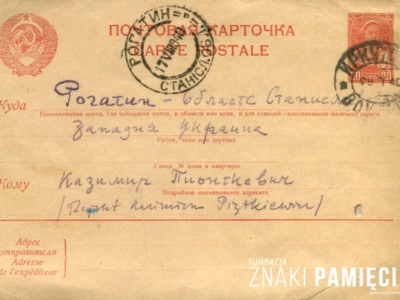 ПОЧТОВАЯ КАРТОЧКА
CARTE POSTALE
РОГАТИН
СТАНИСЛ.
20 20
Куда
Рогатин – область Станисл
Наименование места, где находится почта, и области или края, а для станций – наименование железной дороги
Западня Украина
Район, село или деревня
Улица, № дома и квартиры
Кому
Казимир Пионткевич
Подробное наименование адресата
/ Kazimierz /
Адрес
отправителя
Adresse
de l'expéditeur
FUNDACJA
ZNAKI PAMIĘCI